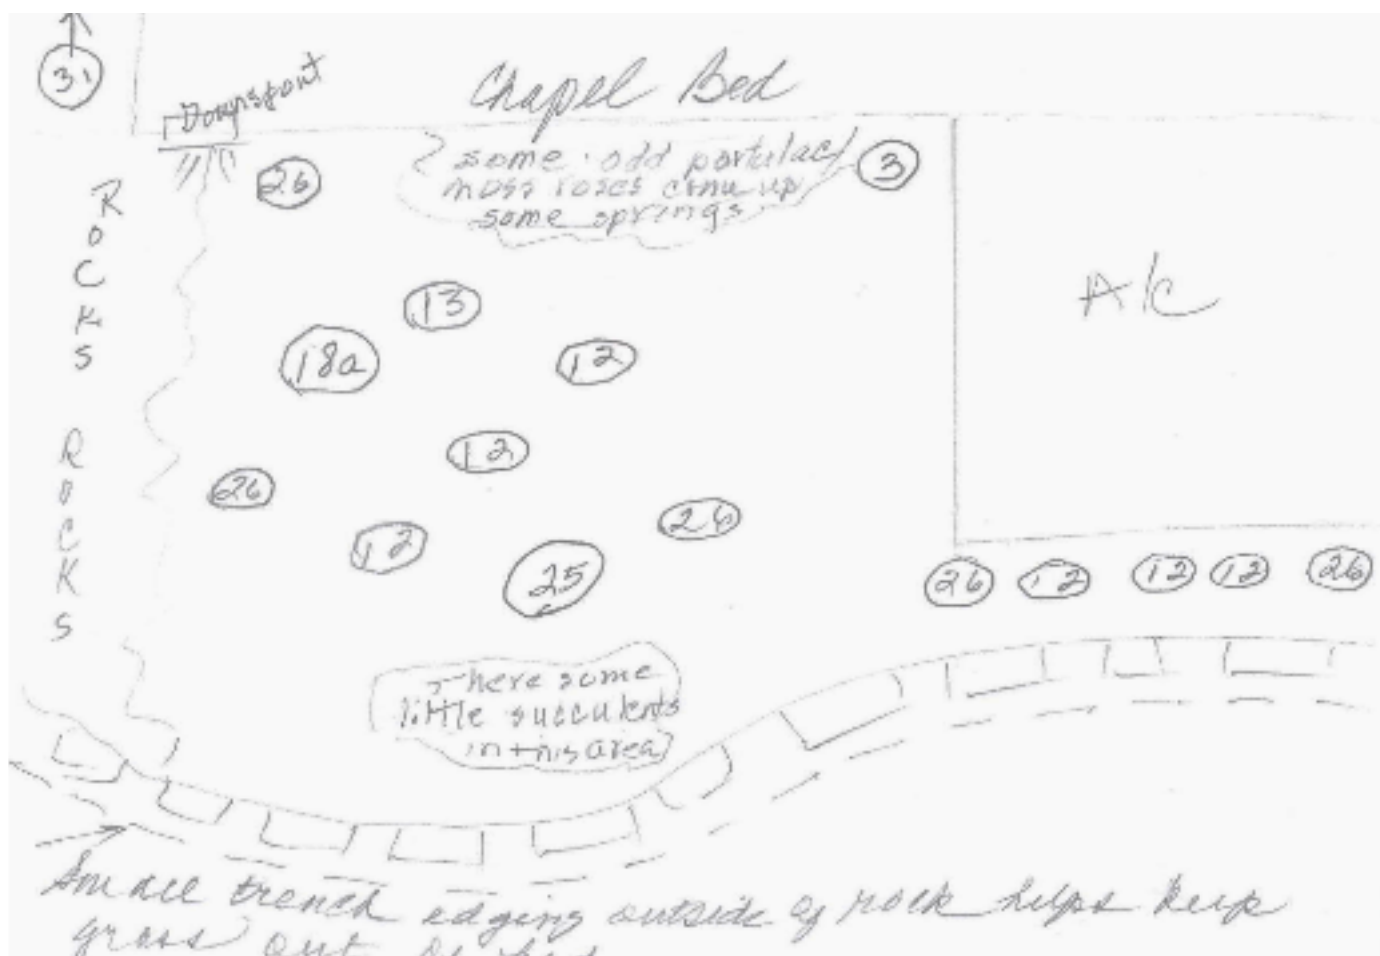 31
Downspout
Chapel Bed
some odd portulac
moss roses come up
some springs
26
3
ROCKS
13
A/c
18a
12
12
ROCKS
26
26
12
25
26
12
12
12
26
There some
little succulents
in this area
Small trench edging outside of rock helps keep
grass out of bed